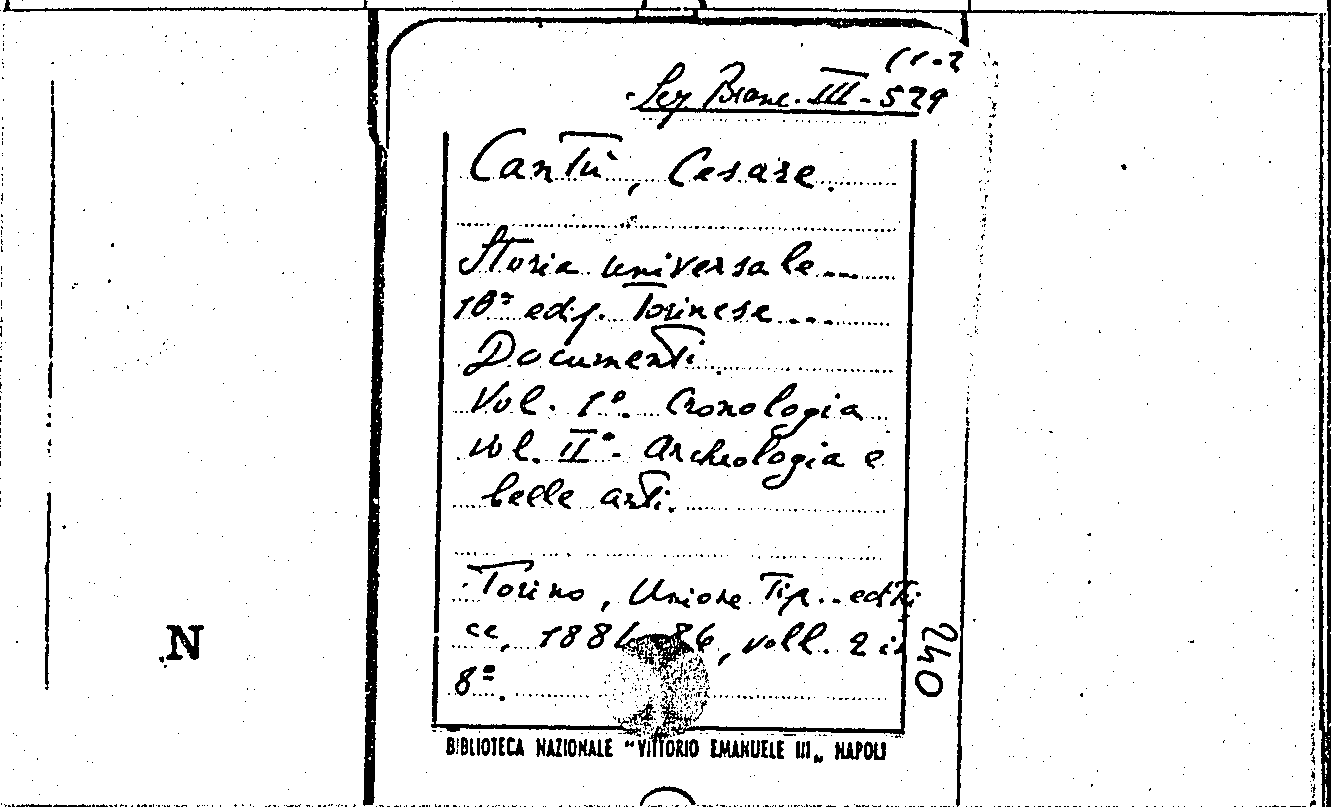 (1-2
Leg Bianc. III - 529
Cantù, Cesare.
Storia universale...
10ª ediz. Torinese...
Documenti.
Vol. Iº. Cronologia
vol. IIº. Archeologia e
belle arti.
Torino, Unione Tip.-editri
ce, 1884-86, voll. 2 in
8º.
240
N
BIBLIOTECA NAZIONALE "VITTORIO EMANUELE III„ NAPOLI